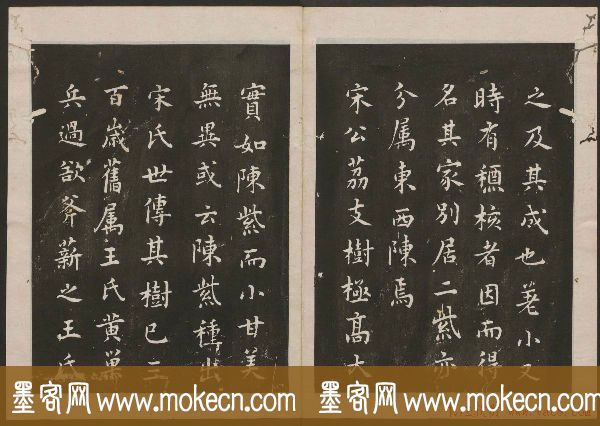 之及其成也差小又
時有穗核者因而得
名其家別居二紫亦
分属東西陳焉
宋公荔支樹極髙大
實如陳紫而小甘美
無異或云陳紫種出
宋氏世傳其樹已三
百歲舊属王氏黄巢
兵過欲斧薪之王氏
墨客网 www.mokecn.com 墨客网 www.mokecn.com